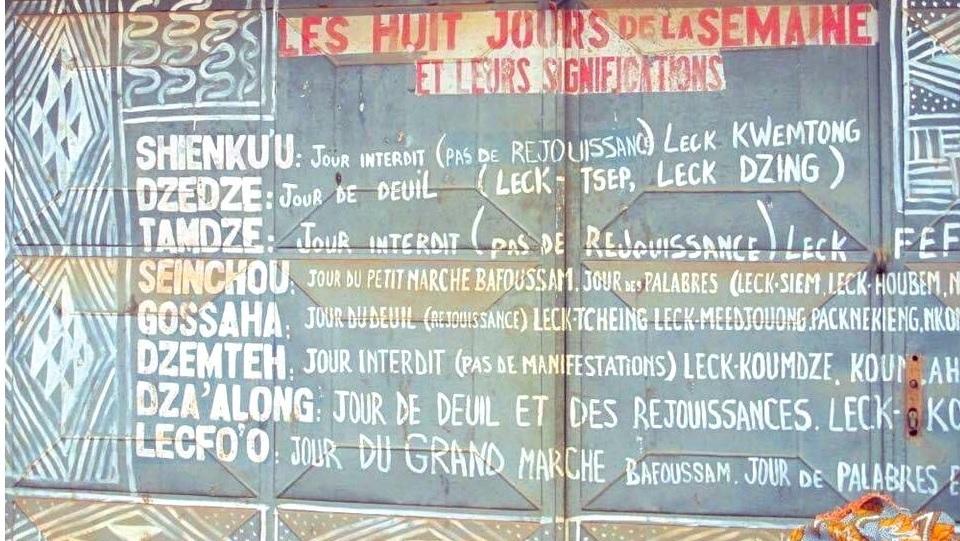 LES HUIT JOURS DE LA SEMAINE
ET LEURS SIGNIFICATIONS
SHIENKU'U: JOUR INTERDIT (PAS DE REJOUISSANCE) LECK KWEMTONG
DZEDZE: JOUR DE DEUIL (LECK-TSEP, LECK DZING)
TAMDZE: JOUR INTERDIT (PAS DE REJOUISSANCE) LECK FEF
SEINCHOU: JOUR DU PETIT MARCHE BAFOUSSAM. JOUR DES PALABRES (LECK-SIEM, LECK-HOUBEM, N
GOSSAHA: JOUR DU DEUIL (REJOUISSANCE) LECK-TCHEING LECK-MEEDJOUONG PACKNEKIENG, NKO
DZEMTEH: JOUR INTERDIT (PAS DE MANIFESTATIONS) LECK-KOUMDZE,
DZA'ALONG: JOUR DE DEUIL ET DES REJOUISSANCES. LECK- KO
LECFO'O: JOUR DU GRAND MARCHE BAFOUSSAM. JOUR DE PALABRES E